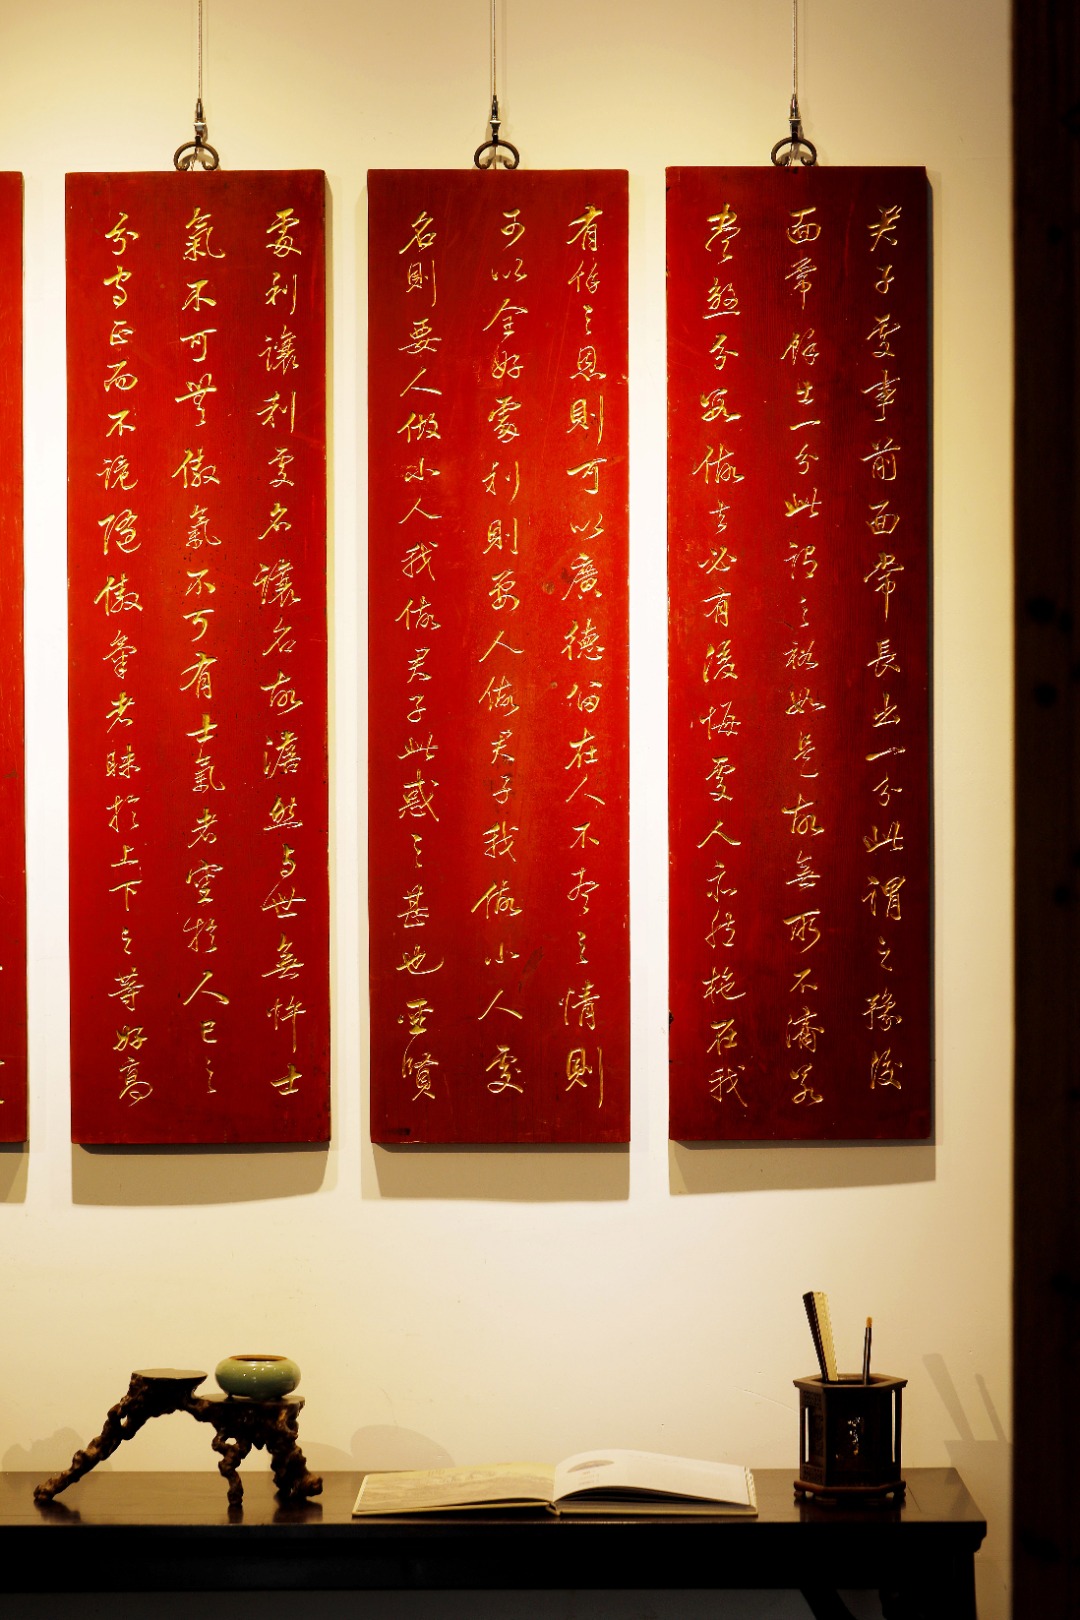 君子處事前面常長出一分此謂之豫後
面常餘出一分此謂之裕如是故無所不濟若
盡煞分數做去必有後悔處人亦然施在我
有餘之恩則可以廣德留在人不盡之情則
可以全好處利則要人做君子我做小人處
名則要人做小人我做君子此惑之甚也聖賢
處利讓利處名讓名故澹然與世無忤士
氣不可無傲氣不可有士氣者於人己之
分守正而不詭隨傲氣者昧於上下之等好高